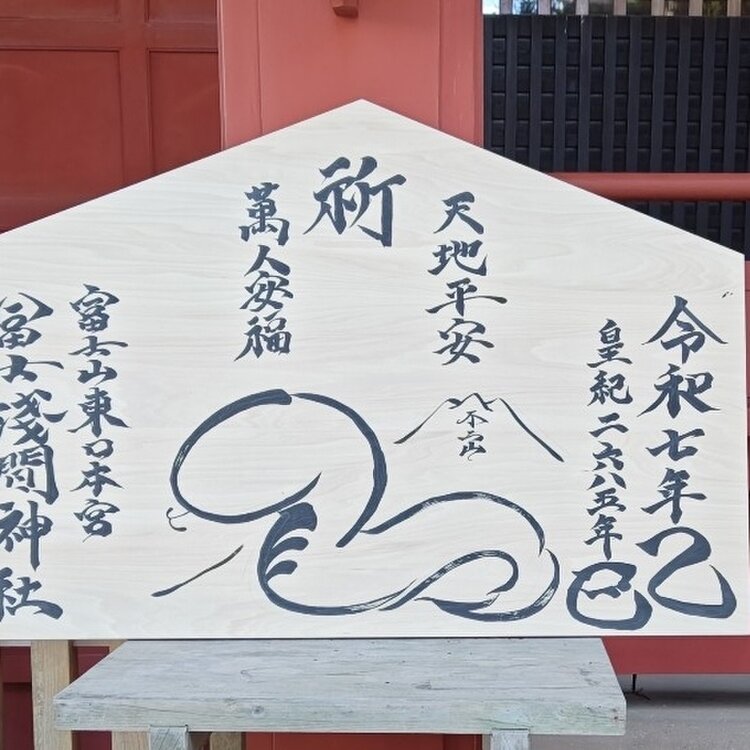 令和七年乙巳
皇紀二六八五年
天地平安
祈
萬人安福
不二山
富士山東口本宮
冨士浅間神社